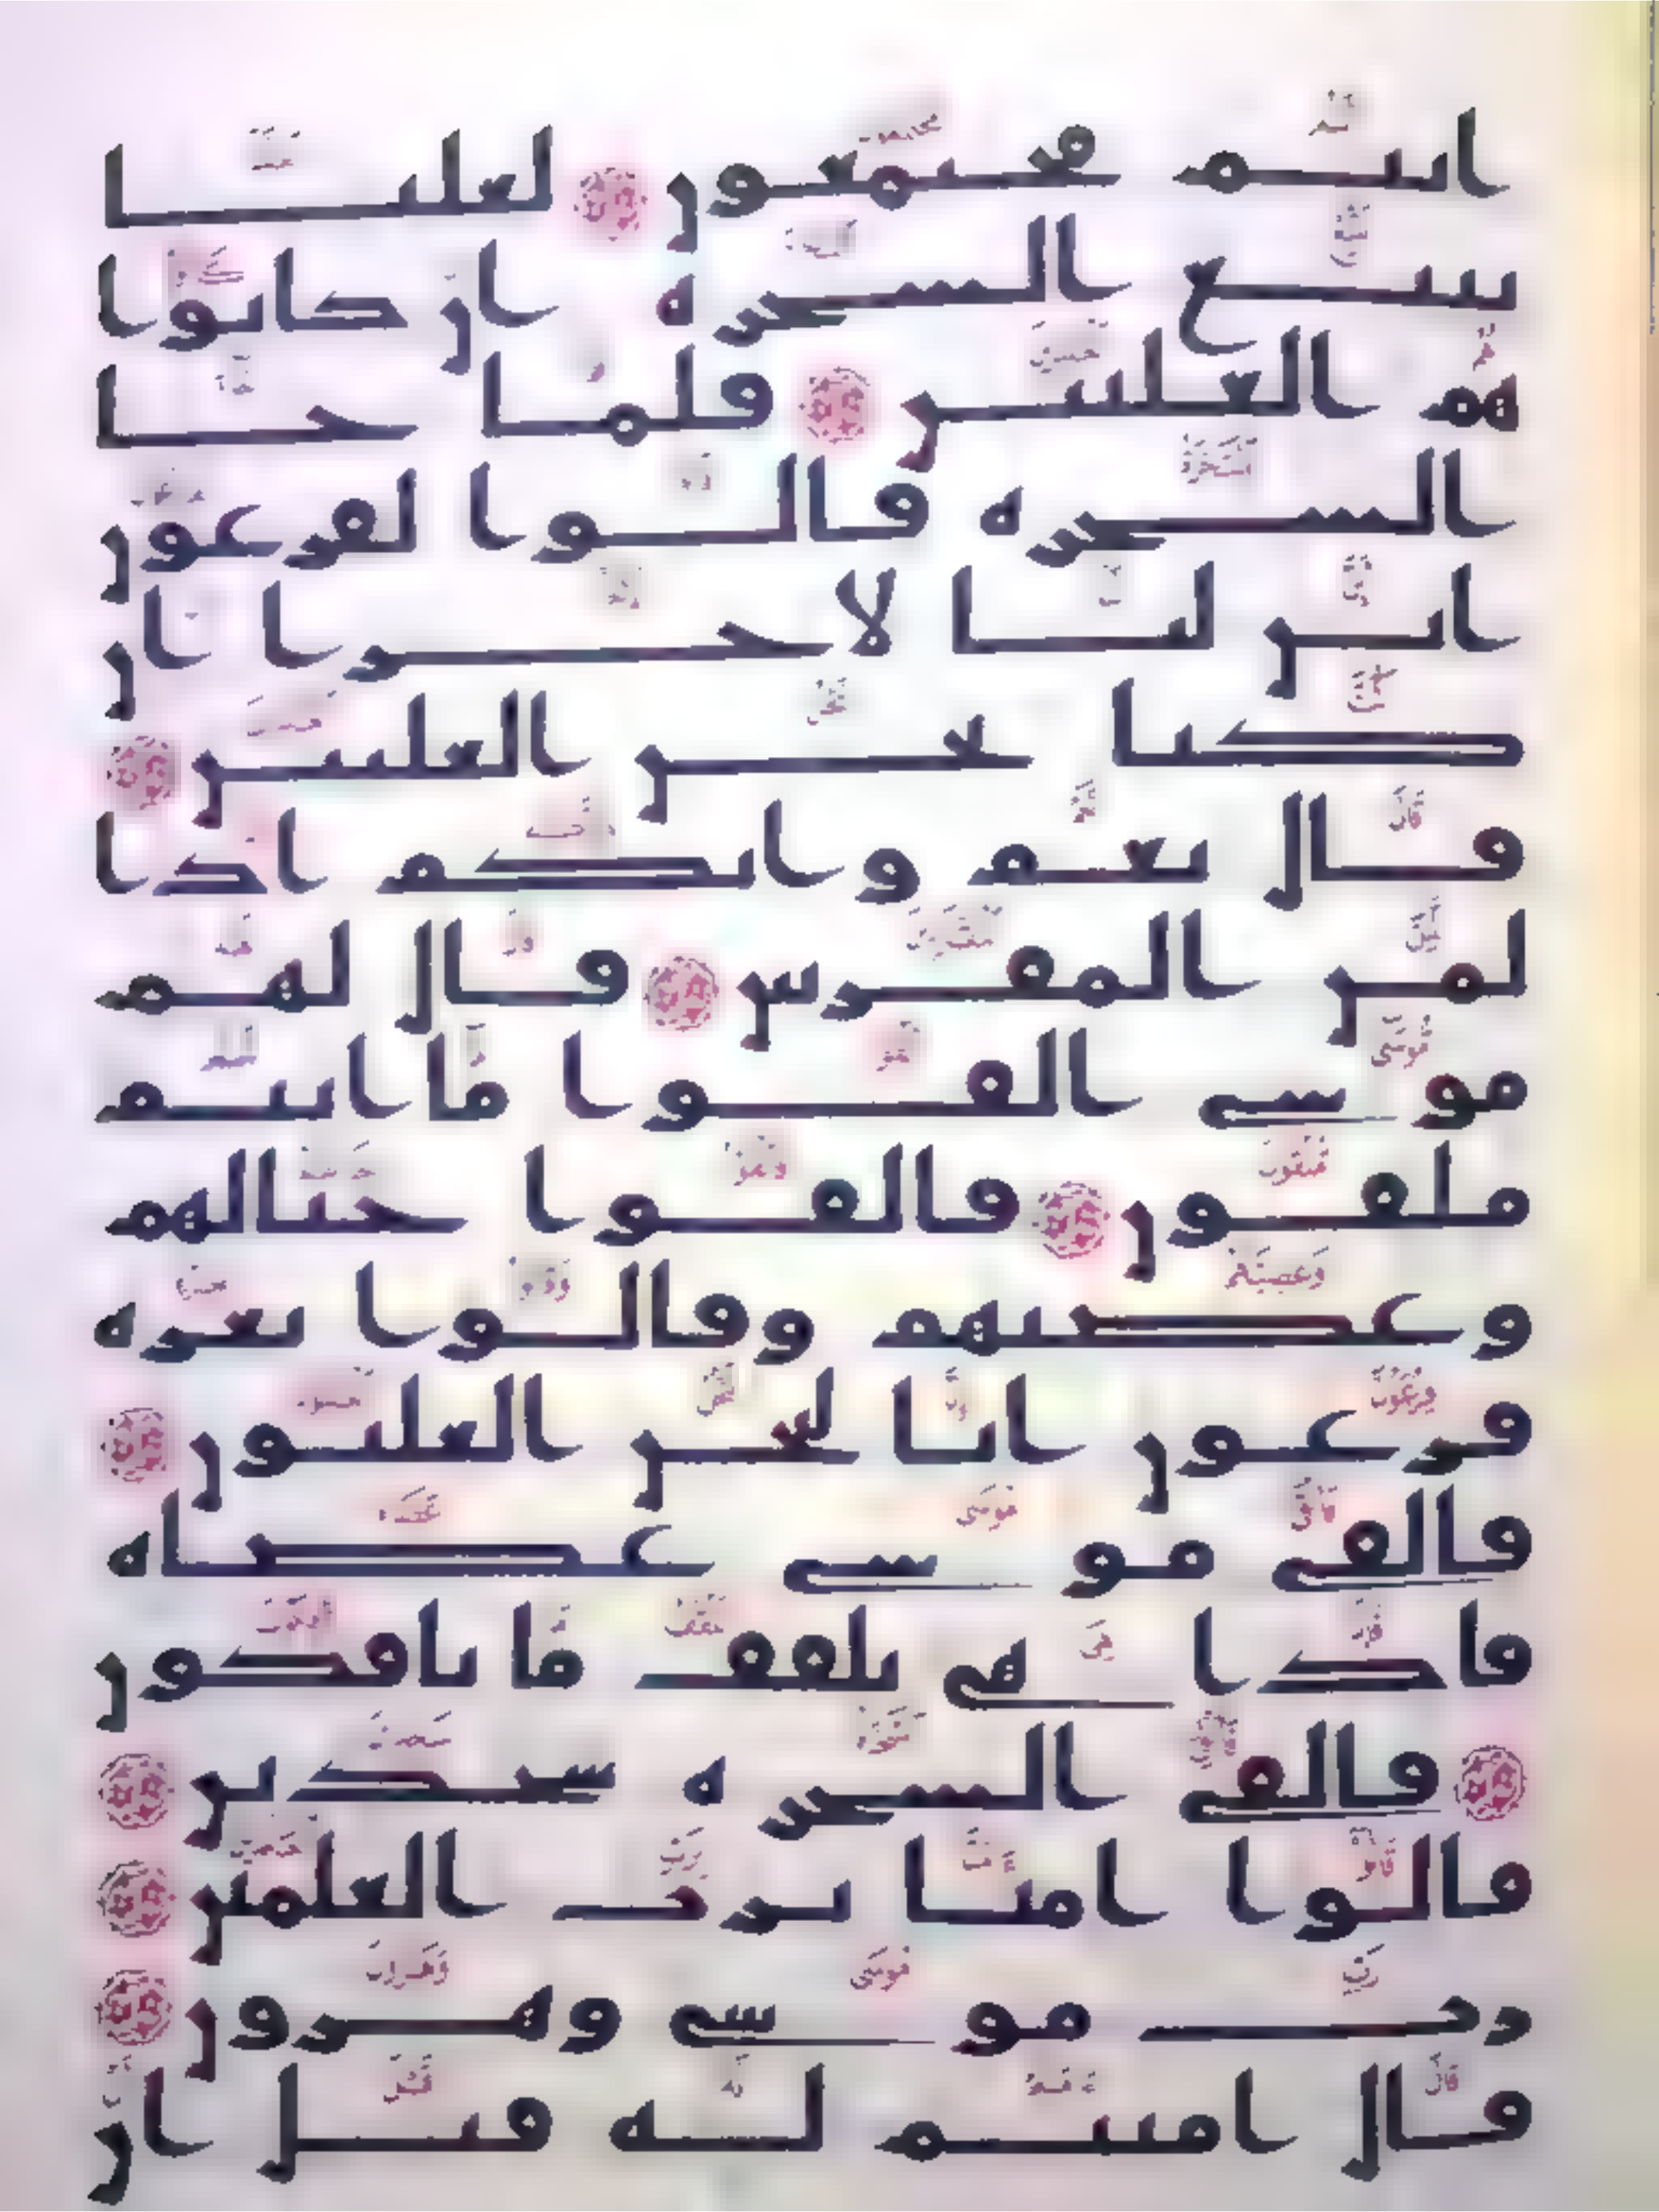 انتم مجتمعون لعلنا
نتبع السحره ان كانوا
هم الغلبين فلما جا
السحره قالوا لفرعون
اين لنا لاجرا ان
كنا نحن الغلبين
قال نعم وانكم اذا
لمن المقربين قال لهم
موسى القوا ما انتم
ملقون فالقوا حبالهم
وعصيهم وقالوا بعزه
فرعون انا لنحن الغلبون
فالقى موسى عصاه
فاذا هى تلقف ما يافكون
فالقى السحره سجدين
قالوا امنا برب العلمين
رب موسى وهرون
قال امنتم له قبل ان